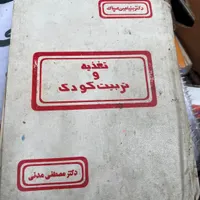 دکتر بنیامین اسپاک
تغذیه
و
تربیت کودک
دکتر مصطفی مدنی